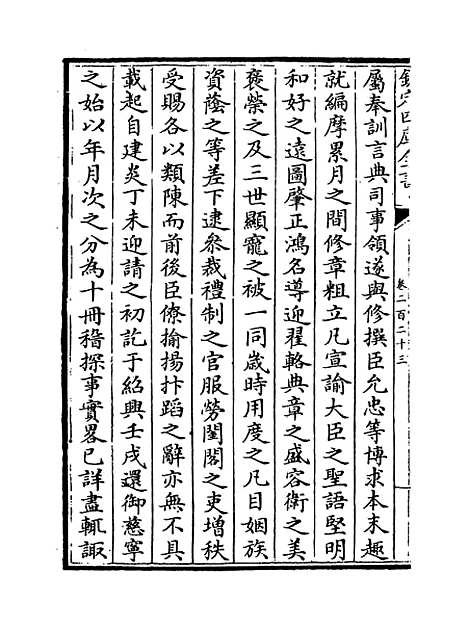 欽定四庫全書
卷二百二十三
屬奉訓言典司事領遂與修撰臣允忠等博求本末趣
就編摩累月之間修章粗立凡宣諭大臣之聖語堅明
和好之遠圖肇正鴻名導迎翟輅典章之盛容衛之美
襃榮之及三世顯寵之被一同歳時用度之凡目姻族
資䕃之等差下逮叅裁禮制之官服勞閨閣之吏増秩
受賜各以類陳而前後臣僚揄揚抃蹈之辭亦無不具
載起自建炎丁未迎請之初訖于紹興壬戌還御慈寧
之始以年月次之分為十冊稽探事實畧已詳盡輒諏